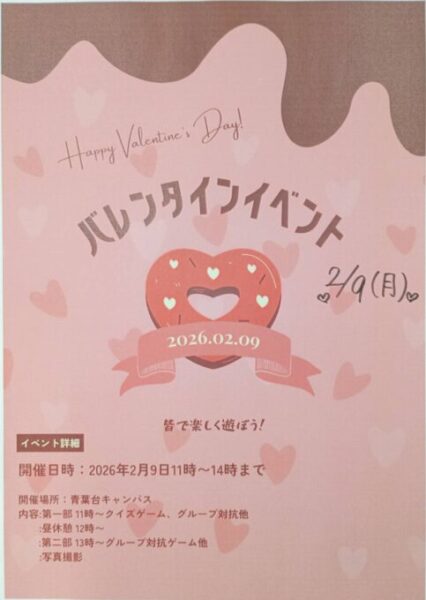 Happy Valentine's Day!
バレンタインイベント
2/9(月)
2026.02.09
皆で楽しく遊ぼう!
イベント詳細
開催日時：2026年2月9日11時～14時まで
開催場所：青葉台キャンパス
内容:第一部 11時～クイズゲーム、グループ対抗他
:昼休憩 12時～
:第二部 13時～グループ対抗ゲーム他
:写真撮影